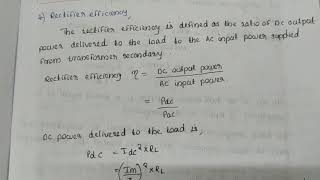 Rectifier efficiency,
The rectifier efficiency is defined as the ratio of DC output
power delivered to the load to the AC input power supplied
from transformer secondary.
Rectifier efficiency η = DC output power
AC input power
= Pdc
Pac
DC power delivered to the load is,
Pdc = Idc² x RL
= (Im)² x RL